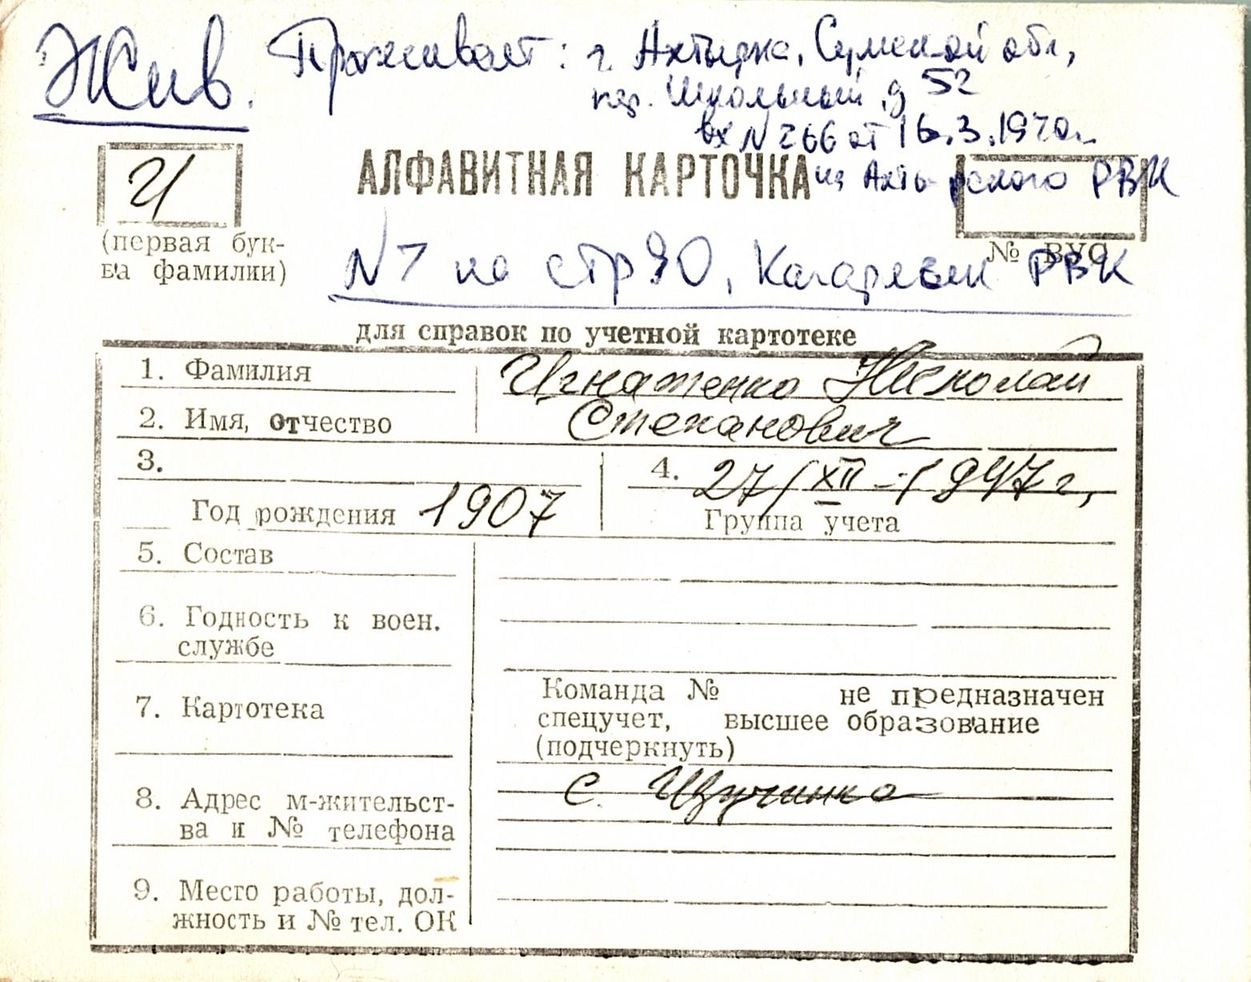 Жив. Проживает: г. Ахтырка, Сумской обл,
пер. Школьный д 52
вх N 266 от 16.3.1970г.
из Ахтырского РВК
И
АЛФАВИТНАЯ КАРТОЧКА
(первая бук-
ва фамилии)
№ ВУС
N 7 на стр 90, РВК
для справок по учетной картотеке
1. Фамилия Игнатенко Николай
2. Имя, отчество Степанович
3. Год рождения 1907
4. 27/XII-1947г,
Группа учета
5. Состав
6. Годность к воен.
службе
7. Картотека
Команда № не предназначен
спецучет, высшее образование
(подчеркнуть)
8. Адрес м-жительст-
ва и № телефона
с. Щучинка
9. Место работы, дол-
жность и № тел. ОК